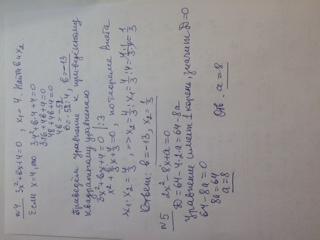 №4 3x²+bx+4=0, x₁=4. Найти b и x₂
Если x=4, то 3·4²+b·4+4=0
3·16+4b+4=0
48+4b+4=0
4b=-52
b=-52:4, b=-13
Приведём уравнение к приведённому
квадратному уравнению
3x²+bx+4=0 |:3
x²+b/3x+4/3=0, по теореме Виета
x₁·x₂=4/3, => x₂=4/3:x₁=4/3:4=4·1/3·4=1/3
Ответ: b=-13, x₂=1/3
№5 2x²-8x+a=0
D=64-4·2·a=64-8a
Уравнение имеет 1 корень, значит D=0
64-8a=0
8a=64
a=8
Отв. a=8